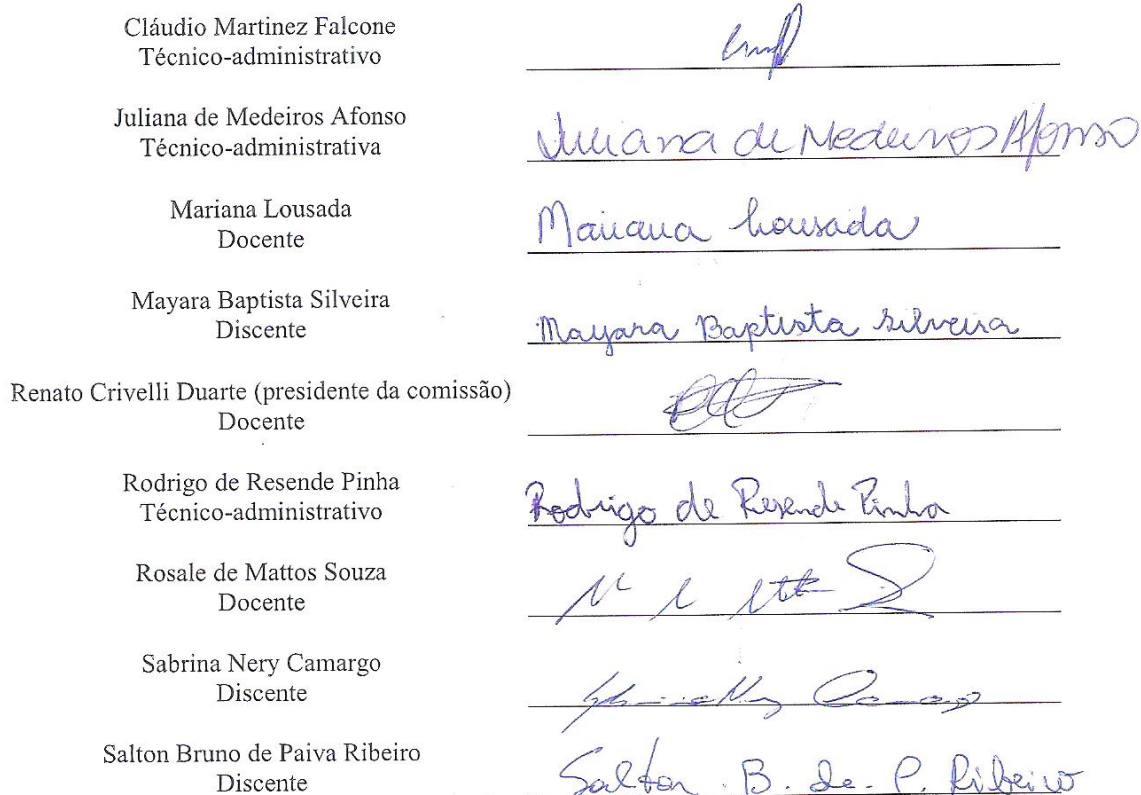 Cláudio Martinez Falcone
Técnico-administrativo
Juliana de Medeiros Afonso
Técnico-administrativa
Juliana de Medeiros Afonso
Mariana Lousada
Docente
Mariana Lousada
Mayara Baptista Silveira
Discente
Mayara Baptista Silveira
Renato Crivelli Duarte (presidente da comissão)
Docente
Rodrigo de Resende Pinha
Técnico-administrativo
Rodrigo de Resende Pinha
Rosale de Mattos Souza
Docente
Sabrina Nery Camargo
Discente
Salton Bruno de Paiva Ribeiro
Discente
Salton B. de P. Ribeiro